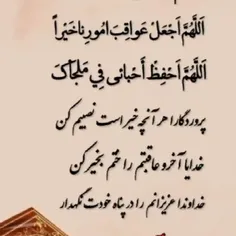 اَللّهُمَّ اَجعَلْ عَواقِبَ اُمورِنا خَیْراً
اَللّهُمَّ اَحْفِظْ أَحْبائی فِي مَلْجَاکَ
پروردگارا هر آنچه خیر است نصیبم کن
خدایا آخر و عاقبتم را ختم بخیر کن
خداوندا عزیزانم را در پناه خودت نگهدار